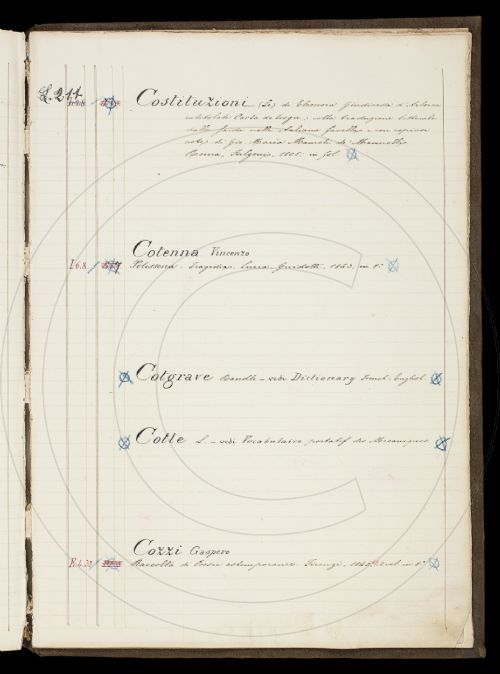 L.211 Costituzioni (Le) di Eleonora Giudicessa d'Arborea
intitolate Carta de Logu; colla traduzione letterale
dalla sarda nella italiana favella e con copiose
note, di Gio Maria Mameli de' Mannelli.
Roma, Fulgoni, 1805. in fol.
Cotenna Vincenzo
I.6.8. Polissena. Tragedia. Lucca, Guidotti, 1863. in 8°
Cotgrave Randle - vedi Dictionary French-English
Cotte L. - vedi Vocabulaire portatif des Mécaniques
Cozzi Gaspero
Raccolta di Poesie estemporanee. Firenze, 2 vol. in 8°